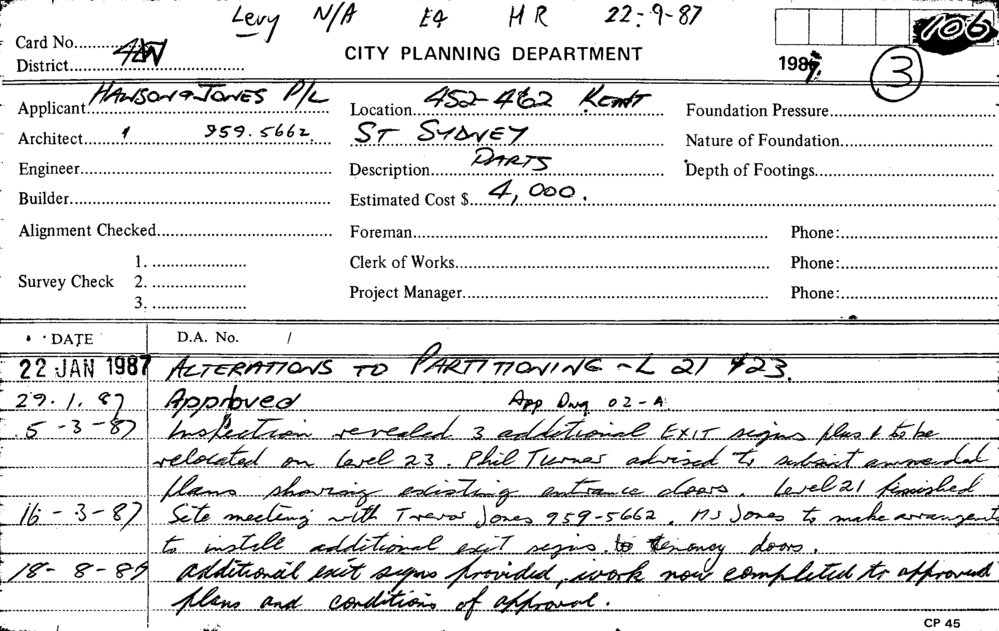 Levy N/A E4 H R 22-9-87
Card No. 106
District 4W
CITY PLANNING DEPARTMENT
1987. 3
Applicant HANSON & JONES P/L Location 452-462 KENT Foundation Pressure
Architect 959.5662 ST SYDNEY Nature of Foundation
Engineer Description PARTS Depth of Footings
Builder Estimated Cost $ 4,000.
Alignment Checked Foreman Phone:
1. Clerk of Works Phone:
Survey Check 2.
3. Project Manager Phone:
DATE D.A. No. /
22 JAN 1987 ALTERATIONS TO PARTITIONING - L 21 & 23.
29.1.87 Approved App Dwg 02-A
5-3-87 Inspection revealed 3 additional EXIT signs plus 1 to be
relocated on level 23. Phil Turner advised to submit ammendal
plans showing existing entrance doors. Level 21 finished
16-3-87 Site meeting with Trevor Jones 959-5662. Mr Jones to make arrangent
to instell additional exit signs to tenancy doors.
18-8-87 additional exit signs provided, work now completed to approved
plans and conditions of approval.
CP 45